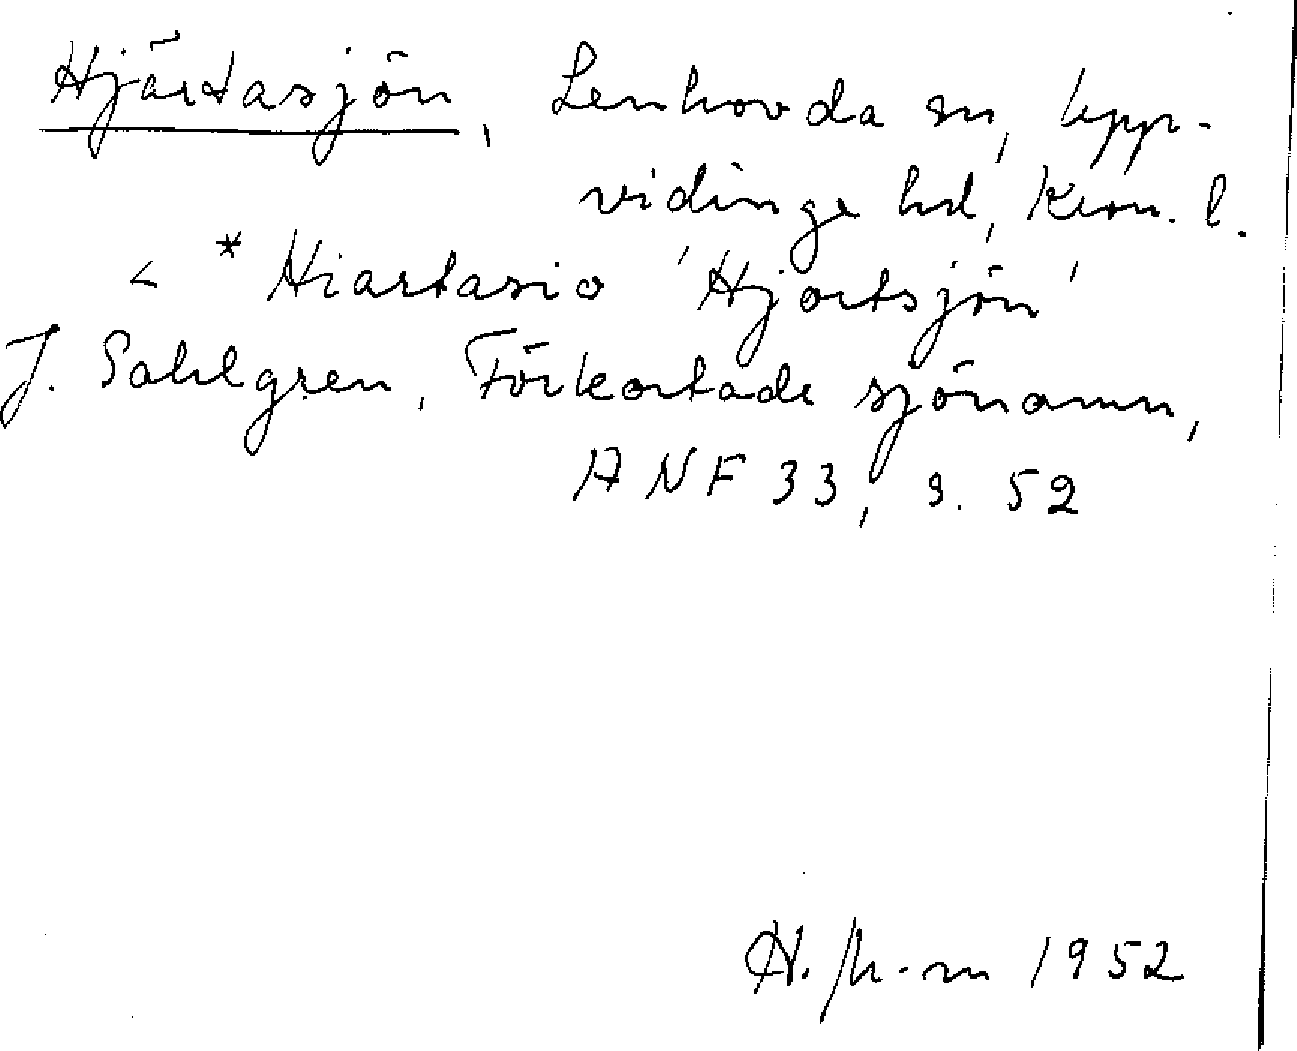 Hjärtasjön, Lenhovda sn, Upp-
vidinge hd, Kron. l.
< * Hiartasio 'Hjortsjön'
J. Sahlgren, Förkortade sjönamn,
ANF 33, s. 52
1952